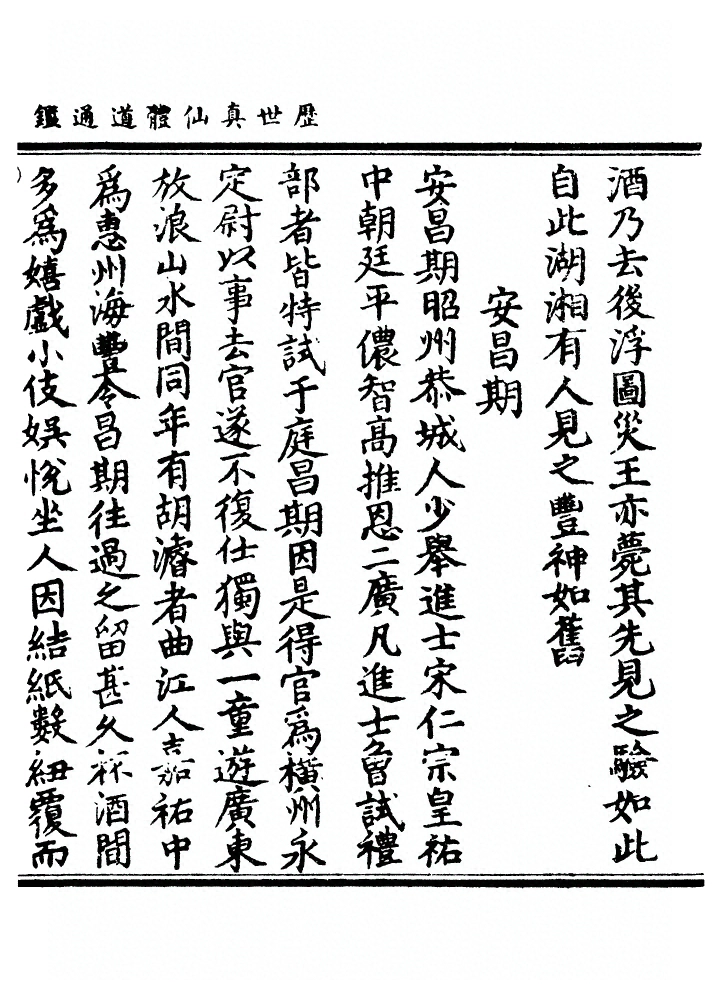 歷世真仙體道通鑑
酒乃去後浮圖災王亦薨其先見之驗如此
自此湖湘有人見之豐神如舊
安昌期
安昌期昭州恭城人少舉進士宋仁宗皇祐
中朝廷平儂智高推恩二廣凡進士魯試禮
部者皆特試于庭昌期因是得官爲橫州永
定尉以事去官遂不復仕獨與一童遊廣東
放浪山水間同年有胡濬者曲江人嘉祐中
爲惠州海豐令昌期往過之留甚久杯酒間
多爲嬉戲小伎娛悅坐人因結紙數紐覆而